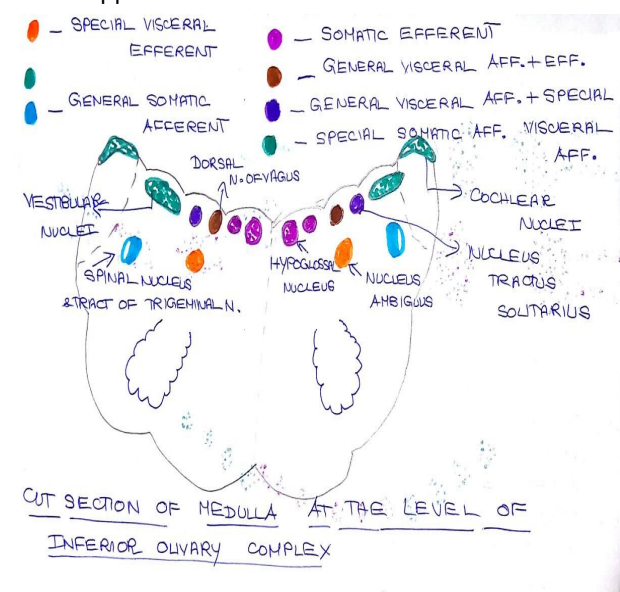 – SPECIAL VISCERAL
EFFERENT
– GENERAL SOMATIC
AFFERENT
– SOMATIC EFFERENT
– GENERAL VISCERAL AFF.+EFF.
– GENERAL VISCERAL AFF.+SPECIAL
VISCERAL
AFF.
– SPECIAL SOMATIC AFF.
DORSAL
N. OF VAGUS
VESTIBULAR
NUCLEI
COCHLEAR
NUCLEI
SPINAL NUCLEUS
& TRACT OF TRIGEMINAL N.
HYPOGLOSSAL
NUCLEUS
NUCLEUS
AMBIGUUS
NUCLEUS
TRACTUS
SOLITARIUS
CUT SECTION OF MEDULLA AT THE LEVEL OF
INFERIOR OLIVARY COMPLEX